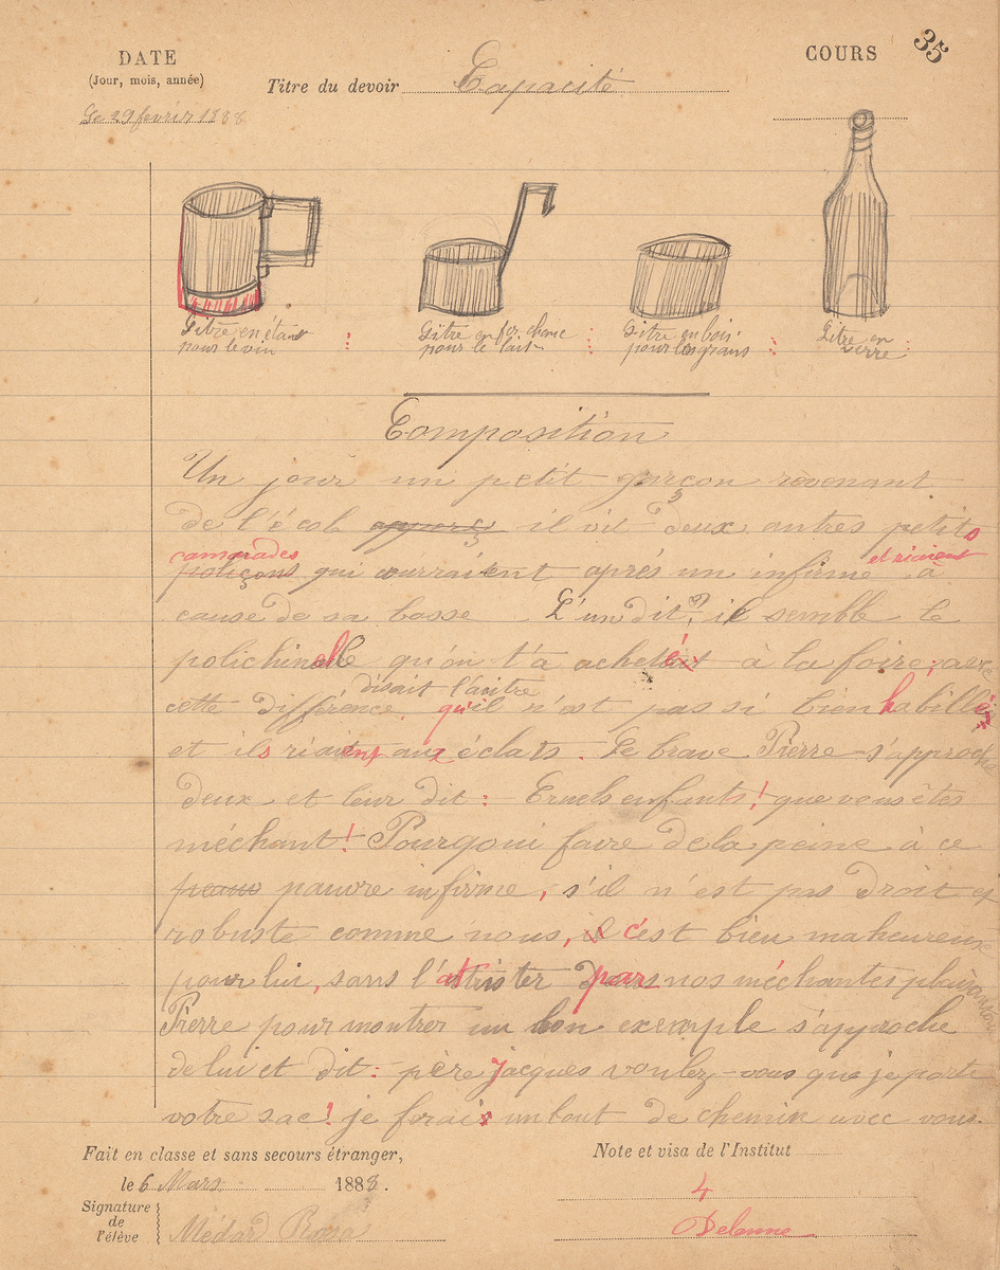 DATE
(Jour, mois, année)
Le 29 fevrir 1888
Titre du devoir Capacité
COURS
35
Litre en étain
pour le vin :
Litre en fer blanc
pour le lait :
Litre en bois
pour les grains :
Litre en
verre :
Composition
Un jour un petit garçon revenant
de l'écol il vit deux autres petits
camarades et riaient
poliçons qui courraient aprés un infirme à
cause de sa bosse L'un dit, il semble le
polichinelle qu'on t'a acheté à la foire; avec
disait l'autre
cette différence, qu'il n'est pas si bien habillé
et ils riaient aux éclats. Le brave Pierre s'approche
deux et leur dit : Cruels enfants! que vous êtes
méchant! Pourgoui faire de la peine à ce
pauvre infirme, s'il n'est pas droit et
robuste comme nous, c'est bien maheureux
pour lui, sans l'attrister par nos méchantes plaisanteries
Pierre pour montrer un bon exemple s'approche
de lui et dit : père Jacques voulez-vous que je porte
votre sac! je ferais un bout de chemin avec vous.
Fait en classe et sans secours étranger,
le 6 Mars 1888.
Signature
de
l'élève
Médar Rosa
Note et visa de l'Institut
4
Delanne